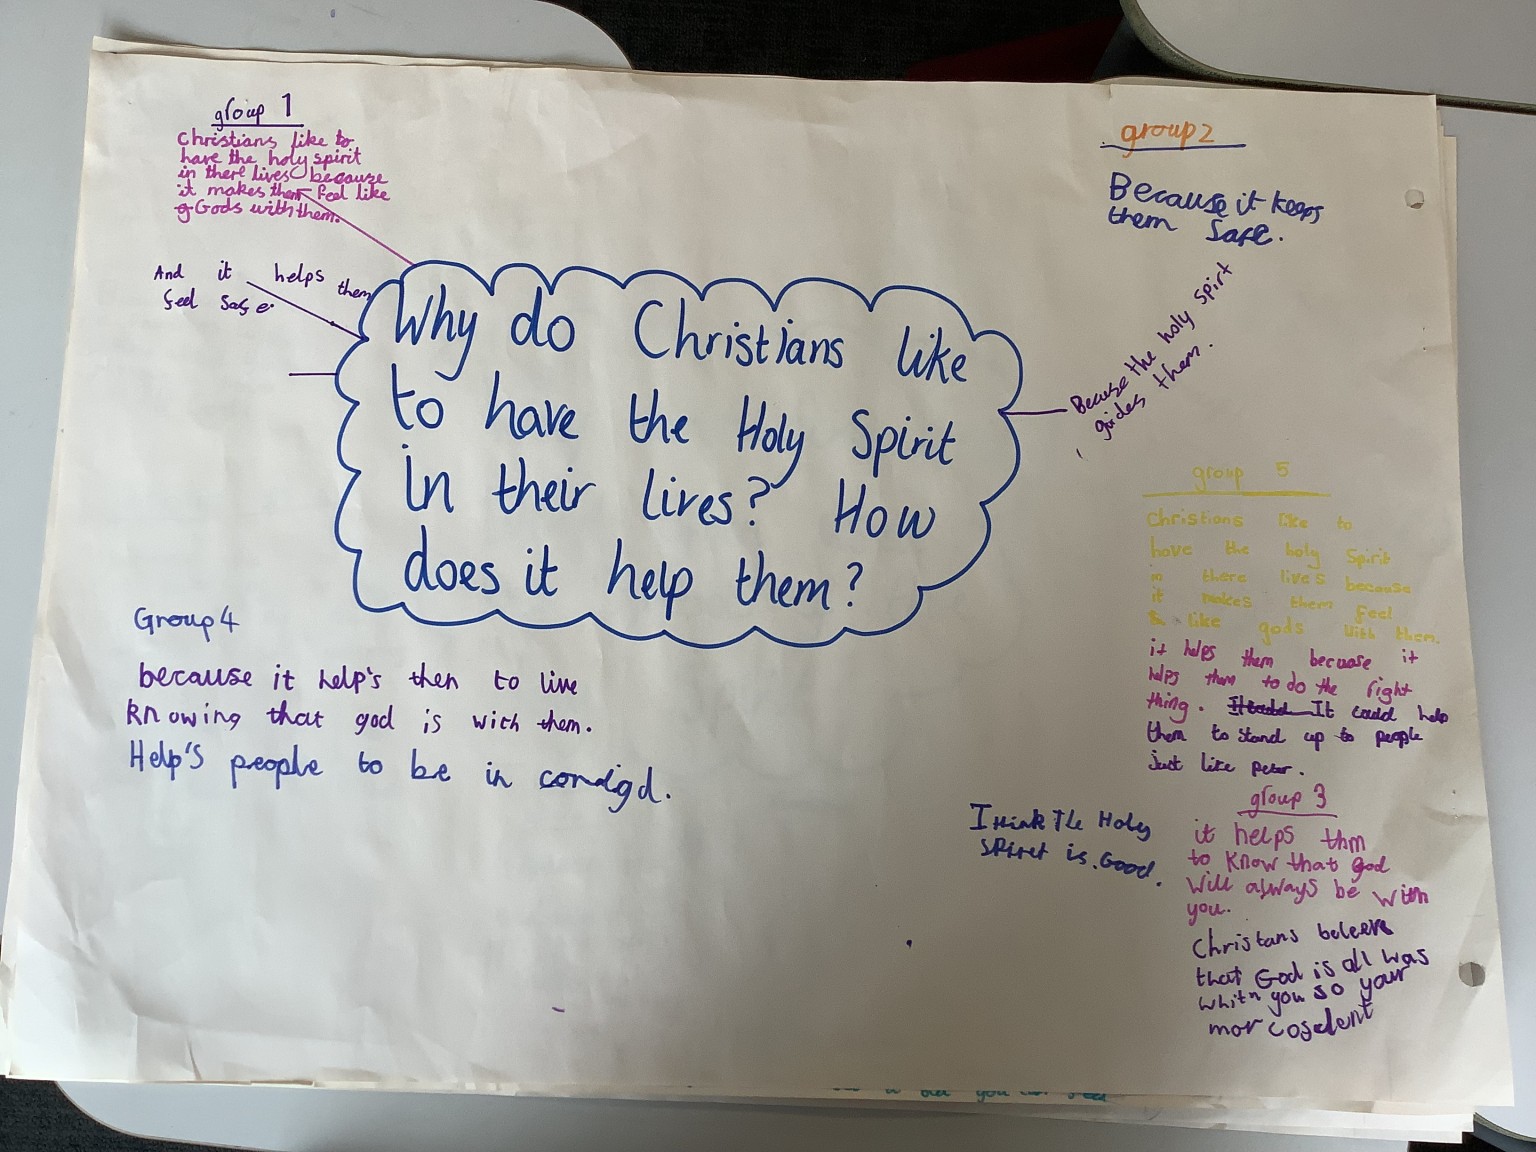 group 1
Christians like to
have the holy spirit
in there lives because
it makes them feel like
Gods with them.
And it helps them
feel safe.
Why do Christians like
to have the Holy Spirit
in their lives? How
does it help them?
group 2
Because it keeps
them safe.
Becuse the holy spirt
gides them.
group 5
Christians like to
have the holy Spirit
in there lives because
it makes them feel
like gods with them.
it helps them becuase it
helps them to do the right
thing. It could help
them to stand up to people
just like peter.
Group 4
because it help's then to live
knowing that god is with them.
Help's people to be in
I think The Holy
spiret is Good.
group 3
it helps thm
to know that god
will always be with
you.
Christans
that God is all was
whith you so your
mor